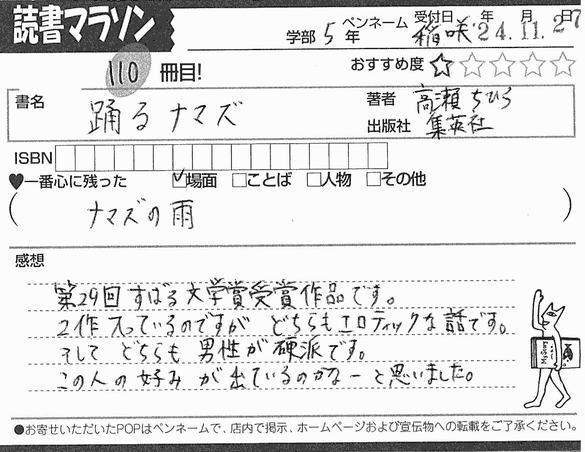 読書マラソン
学部 5 年 ペンネーム 稲咲 受付日 '24年.11.月27日
110 冊目!
おすすめ度 ☆☆☆☆☆
書名 踊るナマズ
著者 高瀬ちひろ
出版社 集英社
ISBN
♥一番心に残った ☑場面 □ことば □人物 □その他
( ナマズの雨 )
感想
第29回すばる文学賞受賞作品です。
2作入っているのですが どちらもエロティックな話です。
そして どちらも 男性が硬派です。
この人の好み が出ているのかなーと思いました。
●お寄せいただいたPOPはペンネームで、店内で掲示、ホームページおよび宣伝物への転載をご了承ください。